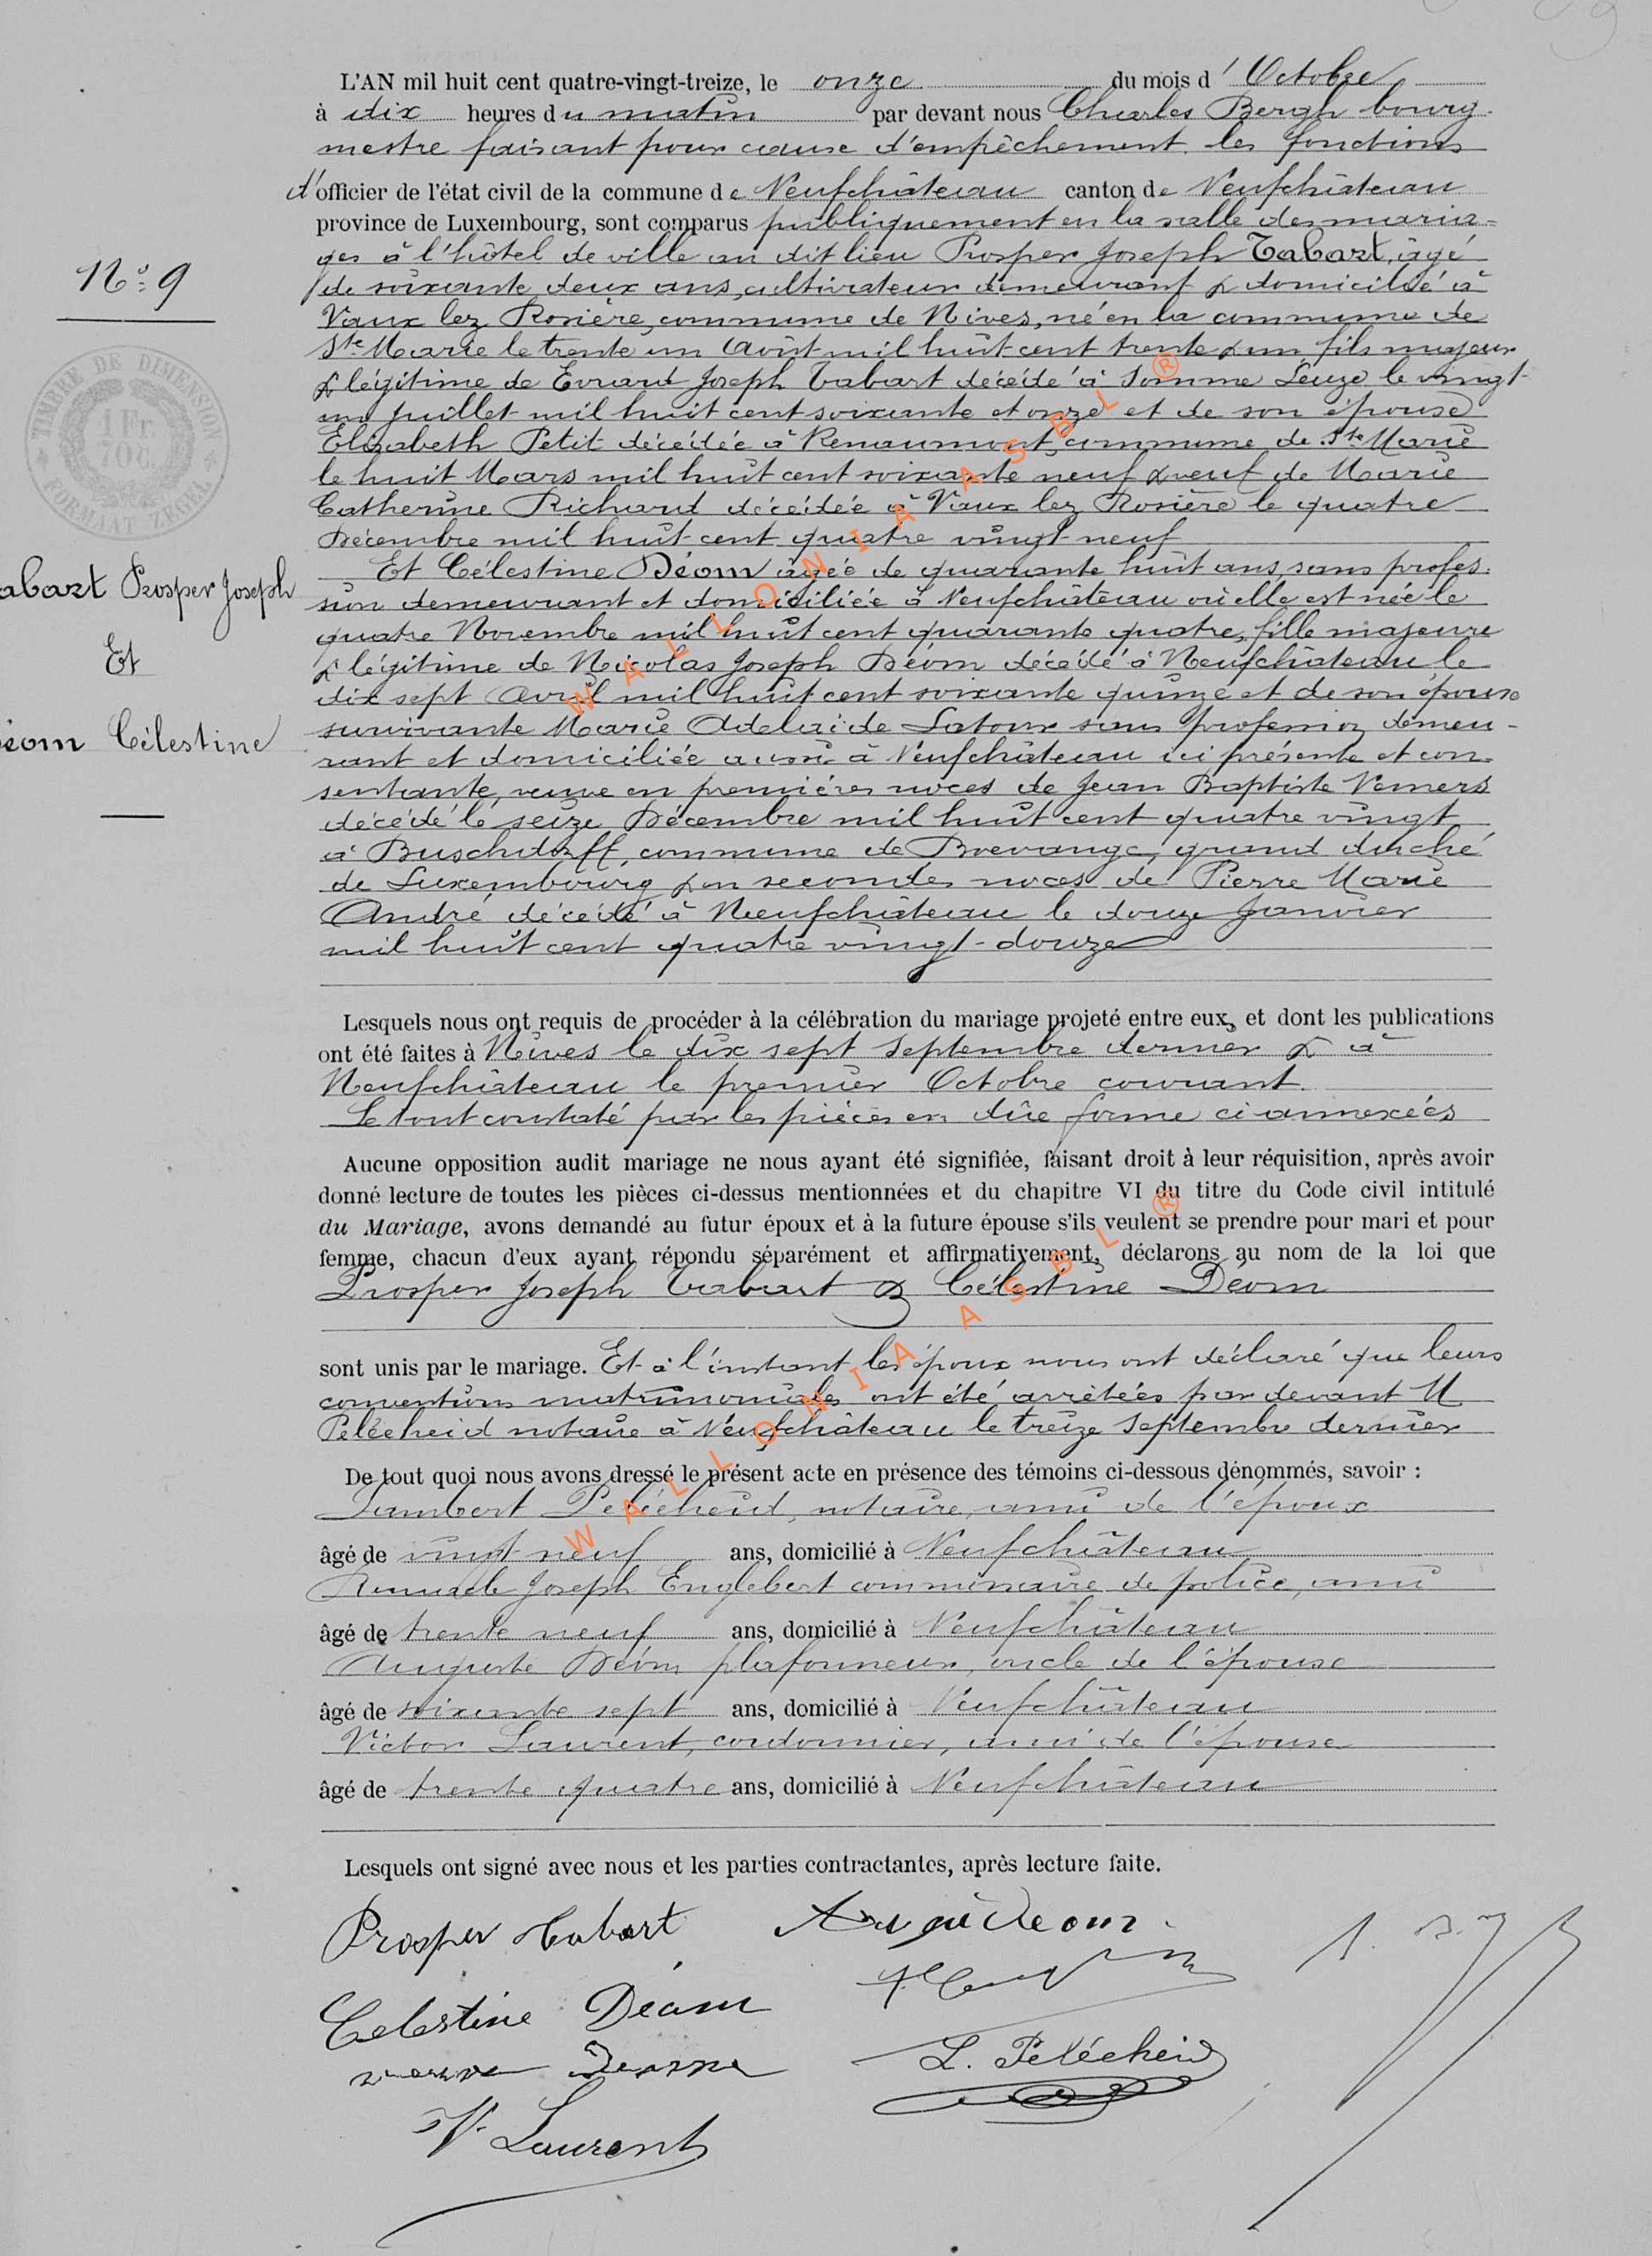 L'AN mil huit cent quatre-vingt-treize, le onze du mois d' Octobre
à dix heures du matin par devant nous Charles Bergh bourg-
mestre faisant pour cause d'empêchement les fonctions
d'officier de l'état civil de la commune de Neufchâteau canton de Neufchâteau
province de Luxembourg, sont comparus publiquement en la salle des maria-
ges à l'hôtel de ville au dit lieu Prosper Joseph Tabart, âgé
de soixante deux ans, cultivateur demeurant & domicilié à
Vaux lez Rosière, commune de Nives, né en la commune de
Ste Marie le trente un Août mil huit cent trente & un fils majeur
& légitime de Evrard Joseph Tabart décédé à Somme Leuze le vingt
un juillet mil huit cent soixante et onze et de son épouse
Elisabeth Petit décédée à Renaumont commune de Ste Marie
le huit Mars mil huit cent soixante neuf & veuf de Marie
Catherine Richard décédée à Vaux lez Rosière le quatre
Décembre mil huit cent quatre vingt neuf
N° 9
TIMBRE DE DIMENSION
1 Fr.
70 C.
FORMAAT ZEGEL
Et Célestine Déom âgée de quarante huit ans sans profes-
sion demeurant et domiciliée à Neufchâteau où elle est née le
quatre Novembre mil huit cent quarante quatre, fille majeure
& légitime de Nicolas Joseph Déom décédé à Neufchâteau le
dix sept Avril mil huit cent soixante quinze et de son épouse
survivante Marie Adelaïde Latour sans profession demeu-
rant et domiciliée aussi à Neufchâteau ici présente et con-
sentante, veuve en premières noces de Jean Baptiste Nemers
décédé le seize Décembre mil huit cent quatre vingt
à Buschdorff, commune de Boevange, grand duché
de Luxembourg & en secondes noces de Pierre Marie
André décédé à Neufchâteau le douze Janvier
mil huit cent quatre vingt-douze
abart Prosper Joseph
Et
éom Célestine
Lesquels nous ont requis de procéder à la célébration du mariage projeté entre eux, et dont les publications
ont été faites à Nives le dix sept Septembre dernier & à
Neufchâteau le premier Octobre courant.
Le tout constaté par les pièces en dûe forme ci annexées
Aucune opposition audit mariage ne nous ayant été signifiée, faisant droit à leur réquisition, après avoir
donné lecture de toutes les pièces ci-dessus mentionnées et du chapitre VI du titre du Code civil intitulé
du Mariage, avons demandé au futur époux et à la future épouse s'ils veulent se prendre pour mari et pour
femme, chacun d'eux ayant répondu séparément et affirmativement, déclarons au nom de la loi que
Prosper Joseph Tabart & Célestine Déom
sont unis par le mariage. Et à l'instant les époux nous ont déclaré que leurs
conventions matrimoniales ont été arrêtées par devant M
Pelécheid notaire à Neufchâteau le treize Septembre dernier
De tout quoi nous avons dressé le présent acte en présence des témoins ci-dessous dénommés, savoir :
Lambert Pelécheid, notaire, ami de l'époux
âgé de vingt neuf ans, domicilié à Neufchâteau
Remacle Joseph Englebert commissaire de police, ami
âgé de trente neuf ans, domicilié à Neufchâteau
Auguste Déom plafonneur, oncle de l'épouse
âgé de soixante sept ans, domicilié à Neufchâteau
Victor Laurent, cordonnier, ami de l'épouse
âgé de trente quatre ans, domicilié à Neufchâteau
Lesquels ont signé avec nous et les parties contractantes, après lecture faite.
Prosper Tabart
Celestine Déom
veuve Deom
V. Laurent
L. Pelécheid
WALLONIA ASBL ®
WALLONIA ASBL ®